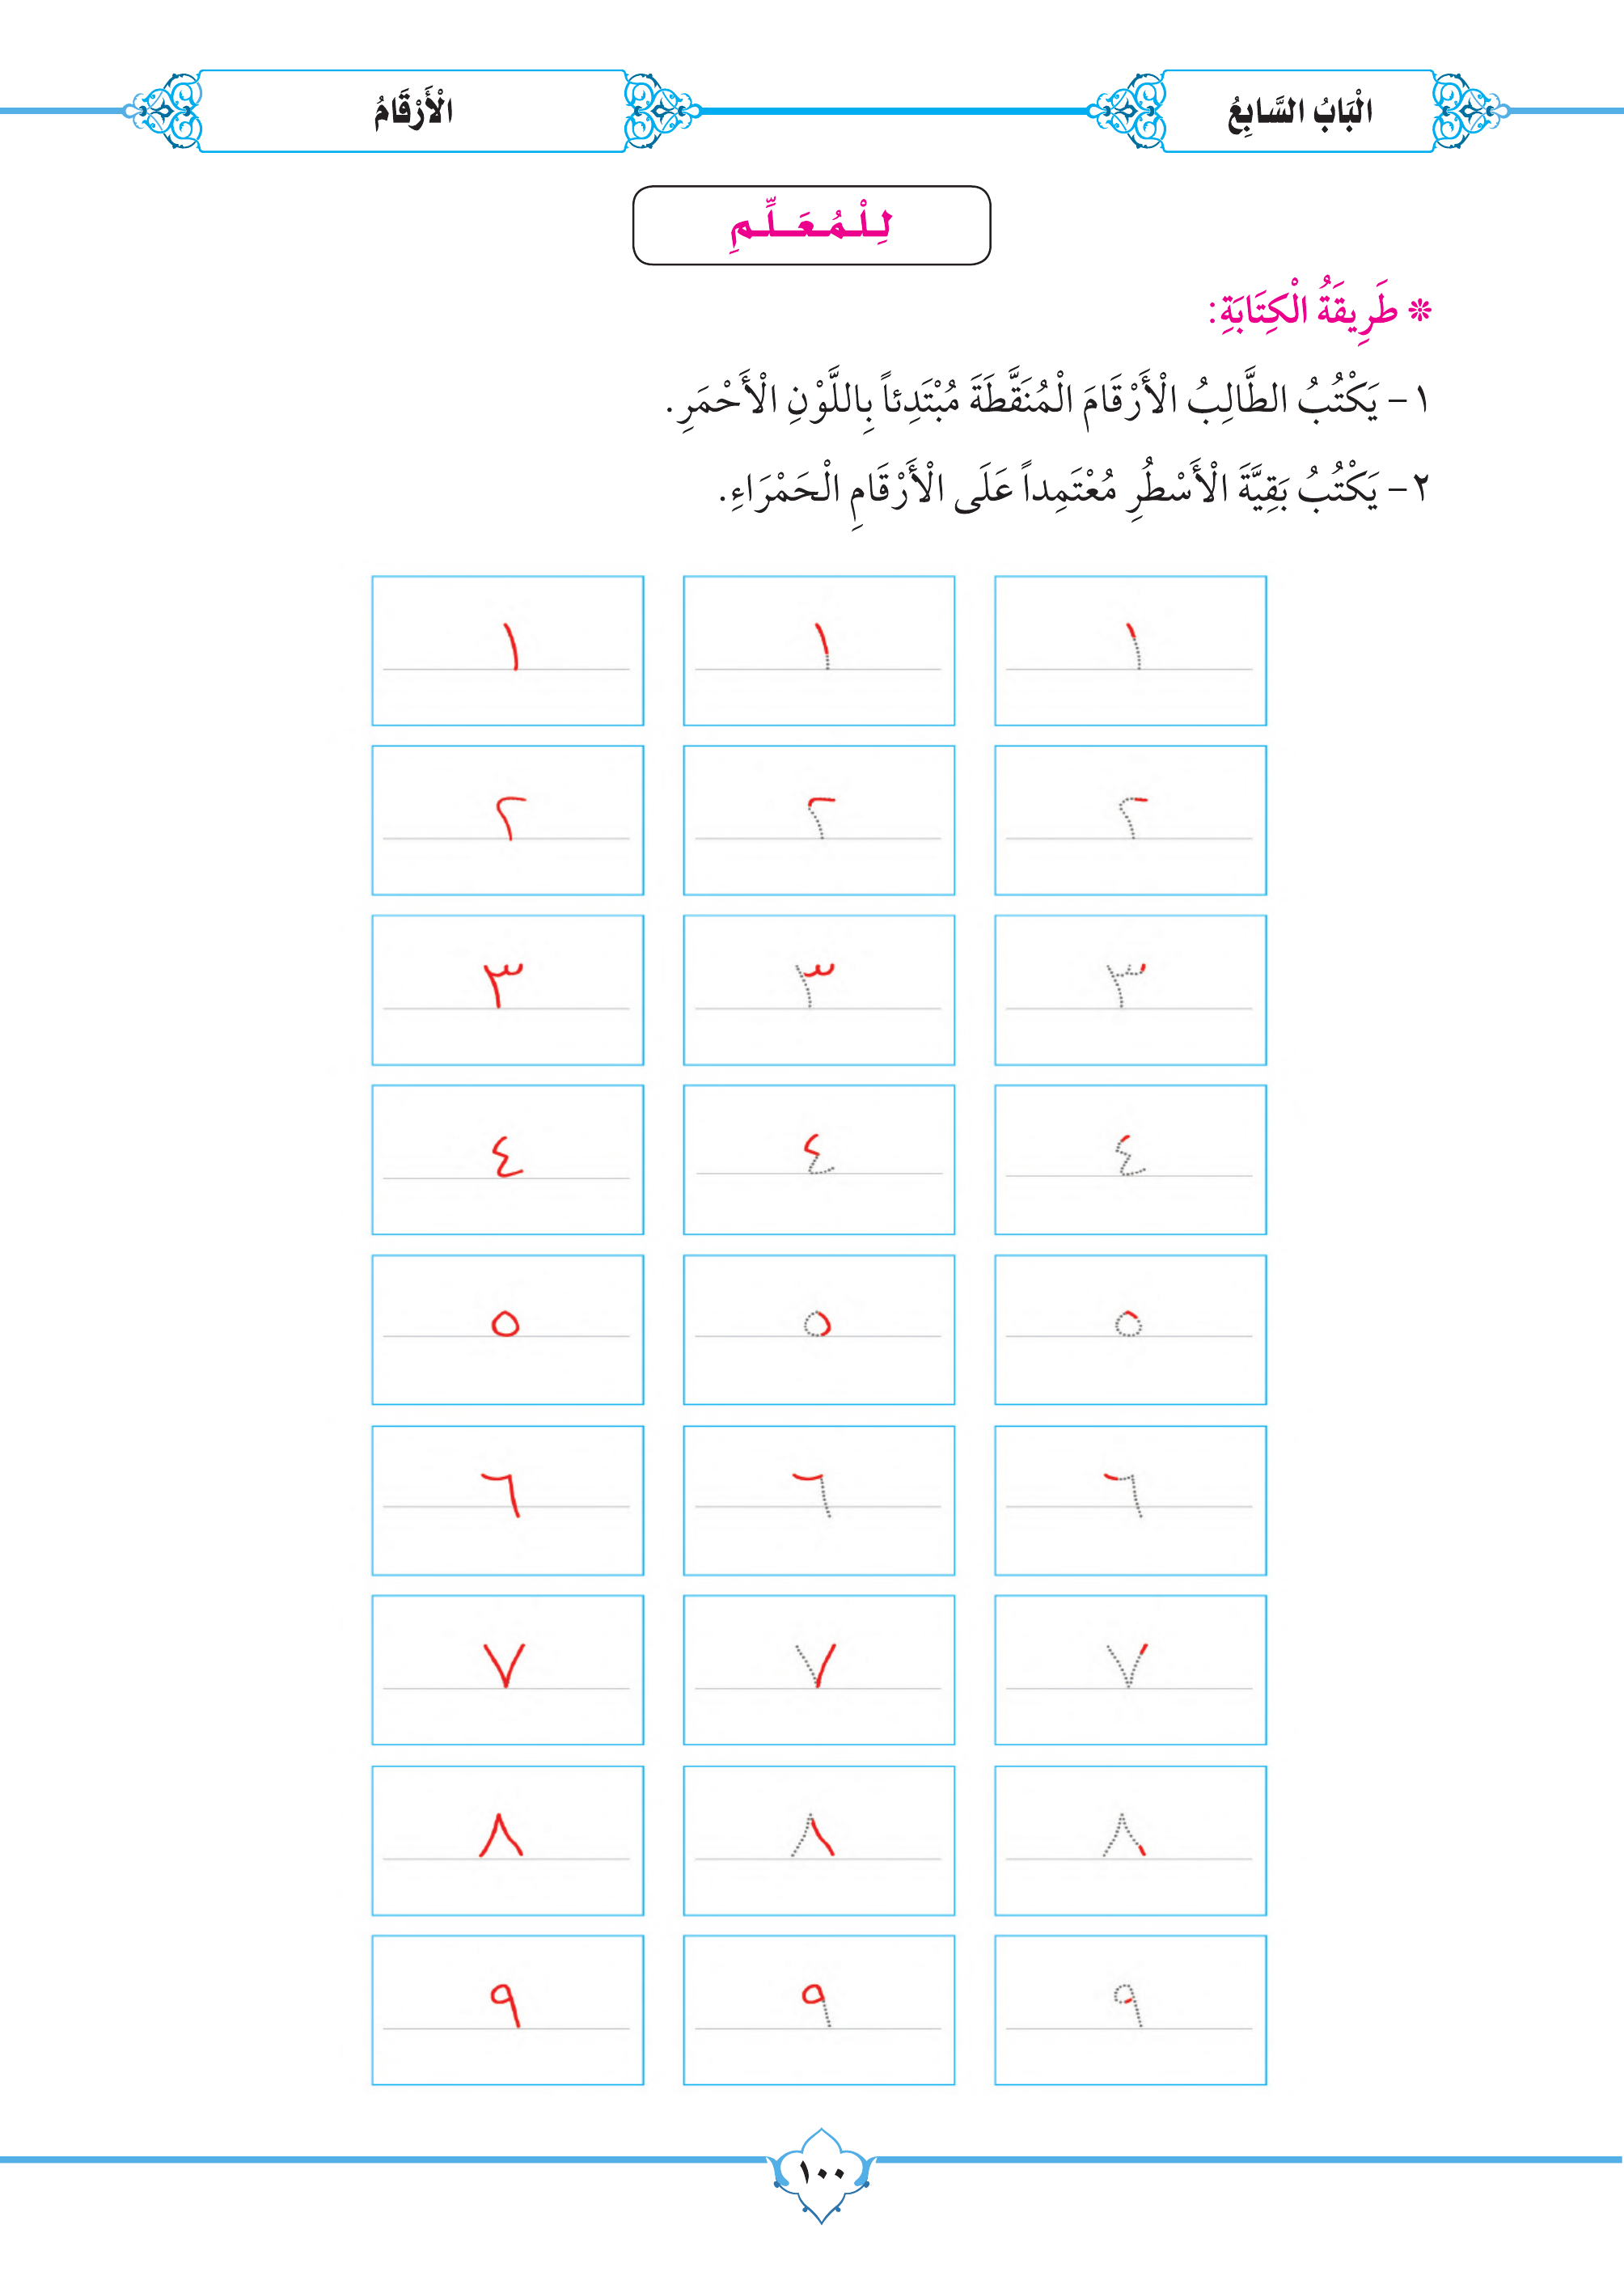 الْبَابُ السَّابِعُ
الْأَرْقَامُ
لِلْمُعَلِّمِ
❊ طَرِيقَةُ الْكِتَابَةِ:
١- يَكْتُبُ الطَّالِبُ الْأَرْقَامَ الْمُنَقَّطَةَ مُبْتَدِئاً بِاللَّوْنِ الْأَحْمَرِ.
٢- يَكْتُبُ بَقِيَّةَ الْأَسْطُرِ مُعْتَمِداً عَلَى الْأَرْقَامِ الْحَمْرَاءِ.
١ ١ ١
٢ ٢ ٢
٣ ٣ ٣
٤ ٤ ٤
٥ ٥ ٥
٦ ٦ ٦
٧ ٧ ٧
٨ ٨ ٨
٩ ٩ ٩
١٠٠